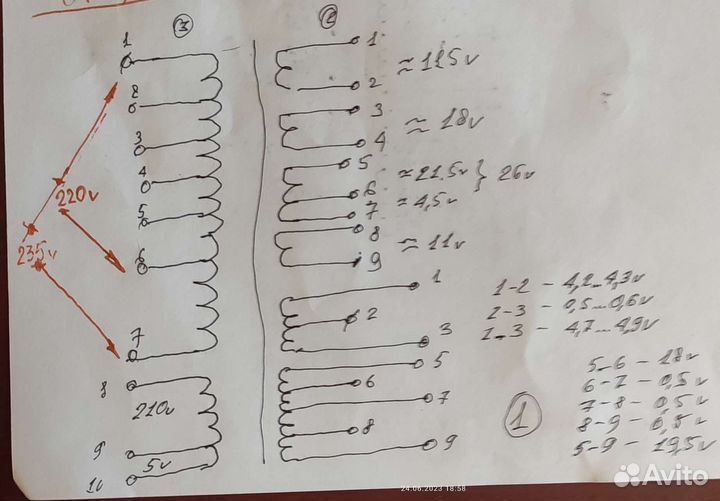 3
2
1
2
3
4
5
6
7
8
9
10
220v
235v
210v
5v
1
2
≈ 115v
3
4
≈ 18v
5
6
7
≈ 21.5v } 26v
≈ 4,5v
8
9
≈ 11v
1
2
3
1-2 - 4,2...4,3v
2-3 - 0,5...0,6v
1-3 - 4,7...4,9v
5
6
7
8
9
1
5-6 - 18v
6-7 - 0,5v
7-8 - 0,5v
8-9 - 0,5v
5-9 - 19,5v
24.06.2023 18:58
Avito